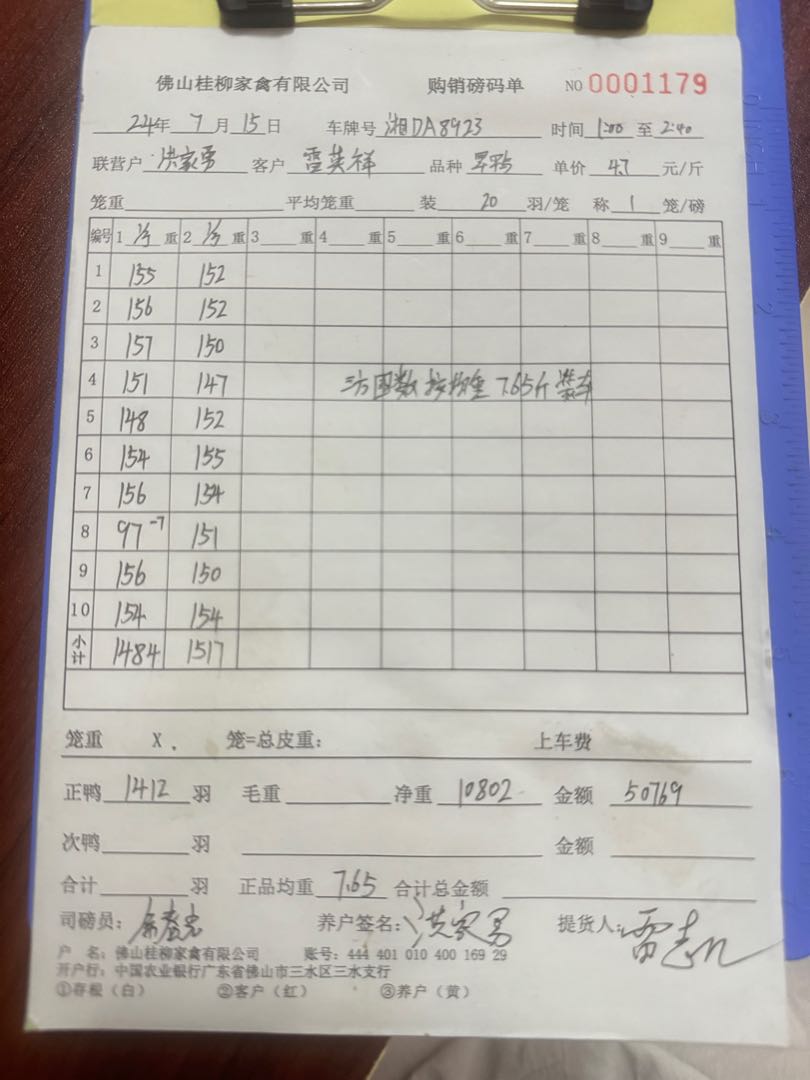 佛山桂柳家禽有限公司 购销磅码单 NO 0001179
24年 7月 15日 车牌号 湘DA8923 时间 1:00 至 2:40
联营户 洪家勇 客户 雷英祥 品种 单价 4.7 元/斤
笼重 平均笼重 装 20 羽/笼 称 1 笼/磅
编号 1 重 2 重 3 重 4 重 5 重 6 重 7 重 8 重 9 重
1 155 152
2 156 152
3 157 150
4 151 147 三方 数 按 重 7.65斤 装车
5 148 152
6 154 155
7 156 154
8 97 -7 151
9 156 150
10 154 154
小计 1484 1517
笼重 X . 笼=总皮重: 上车费
正鸭 1412 羽 毛重 净重 10802 金额 50769
次鸭 羽 金额
合计 羽 正品均重 7.65 合计总金额
司磅员: 养户签名: 洪家勇 提货人: 雷志
户 名: 佛山桂柳家禽有限公司 账号: 444 401 010 400 169 29
开户行: 中国农业银行广东省佛山市三水区三水支行
①存根(白) ②客户(红) ③养户(黄)